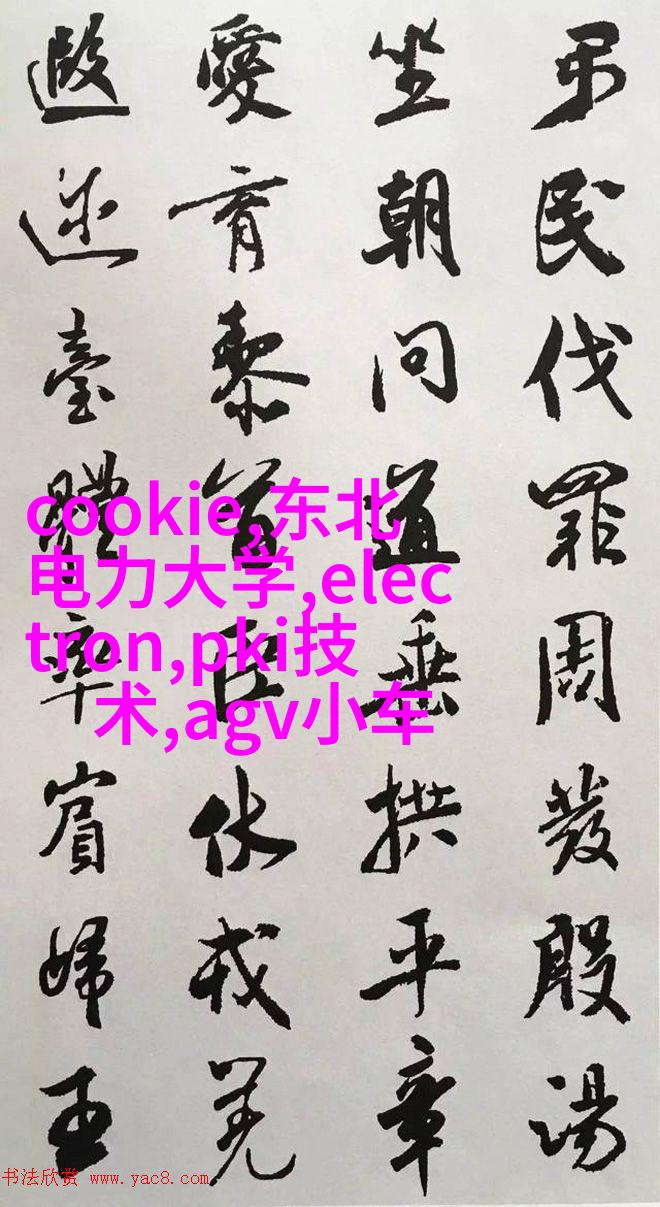 弔民伐罪周發殷湯
坐朝問道垂拱平章
愛育黎首臣伏戎羌
遐邇壹體率賓歸王
cookie,东北
电力大学,elec
tron,pki技
术,agv小车
书法欣赏 www.yac8.com